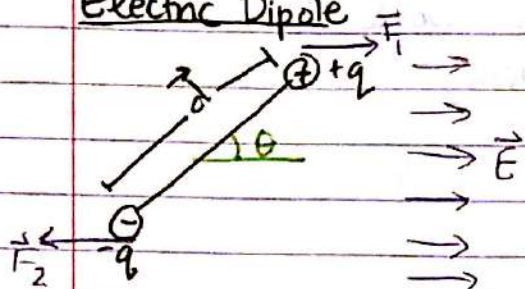 Electric Dipole
F₁
+q
d
θ
E
F₂
-q